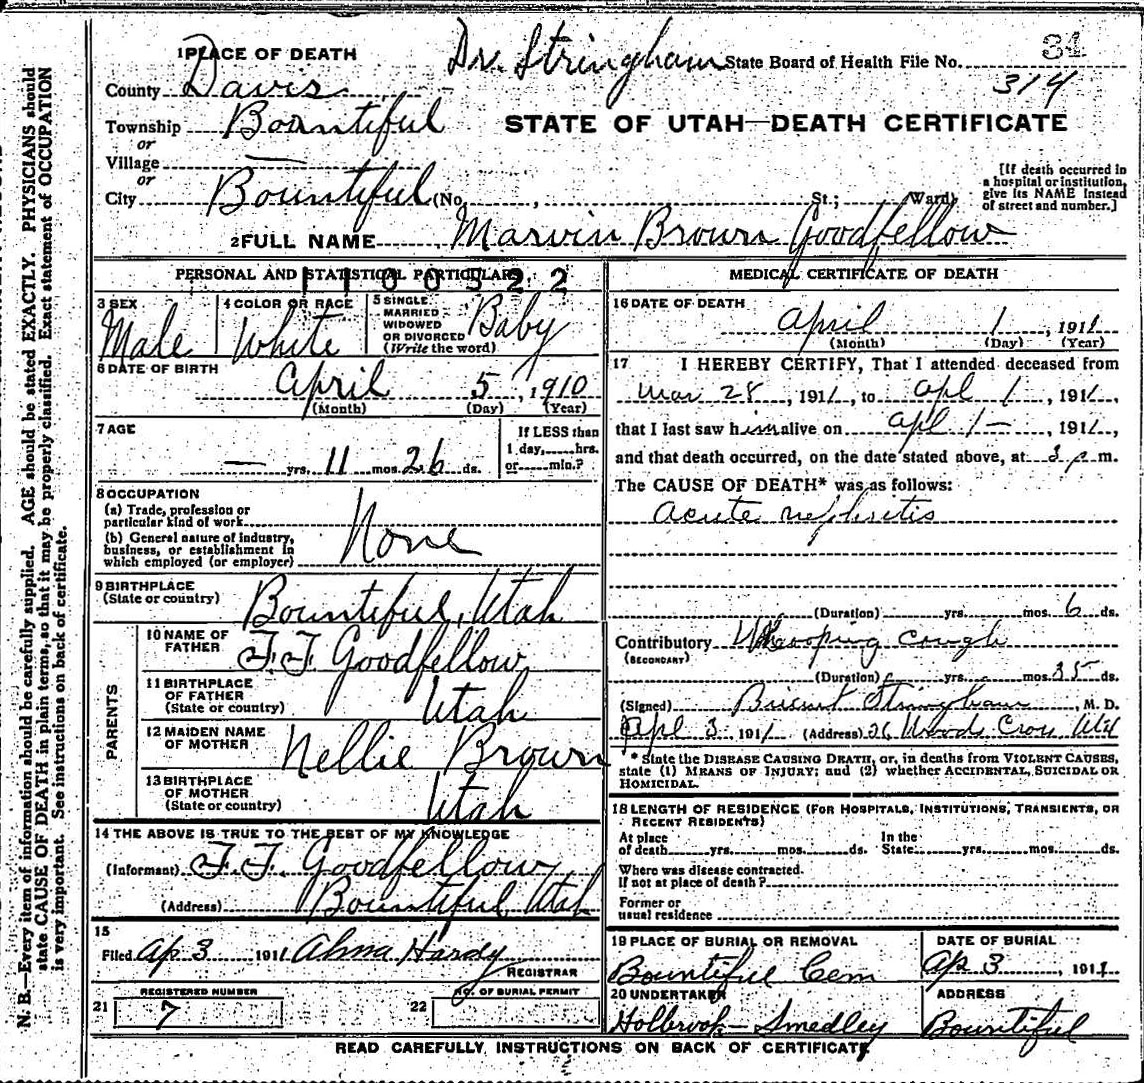 81
1 PLACE OF DEATH
Dr. Stringham State Board of Health File No. 314
County Davis
Township Bountiful
or
STATE OF UTAH—DEATH CERTIFICATE
Village —
or
City Bountiful (No. , St.; Ward)
[If death occurred in
a hospital or institution,
give its NAME instead
of street and number.]
2 FULL NAME Marvin Brown Goodfellow
PERSONAL AND STATISTICAL PARTICULARS
1100322
3 SEX
Male
4 COLOR OR RACE
White
5 SINGLE
MARRIED
WIDOWED
OR DIVORCED
(Write the word)
Baby
6 DATE OF BIRTH
April 5, 1910
(Month) (Day) (Year)
7 AGE
— yrs. 11 mos. 26 ds.
If LESS than
1 day, hrs.
or min.?
8 OCCUPATION
(a) Trade, profession or
particular kind of work
(b) General nature of industry,
business, or establishment in
which employed (or employer)
None
9 BIRTHPLACE
(State or country)
Bountiful, Utah
PARENTS
10 NAME OF
FATHER
F. F. Goodfellow
11 BIRTHPLACE
OF FATHER
(State or country)
Utah
12 MAIDEN NAME
OF MOTHER
Nellie Brown
13 BIRTHPLACE
OF MOTHER
(State or country)
Utah
14 THE ABOVE IS TRUE TO THE BEST OF MY KNOWLEDGE
(Informant) F. F. Goodfellow
(Address) Bountiful Utah
15
Filed Ap 3 1911 Alma Hardy
REGISTRAR
21 REGISTERED NUMBER
7
22 NO. OF BURIAL PERMIT
MEDICAL CERTIFICATE OF DEATH
16 DATE OF DEATH
April 1, 1911
(Month) (Day) (Year)
17 I HEREBY CERTIFY, That I attended deceased from
Mar 28, 1911, to Apl 1, 1911,
that I last saw him alive on Apl 1 —, 1911,
and that death occurred, on the date stated above, at 3 p m.
The CAUSE OF DEATH* was as follows:
Acute nephritis
(Duration) yrs. mos. 6 ds.
Contributory Whooping cough
(SECONDARY)
(Duration) yrs. mos. 35 ds.
(Signed) Stringham, M. D.
Apl 3 1911 (Address) Woods Cross Utah
* State the DISEASE CAUSING DEATH, or, in deaths from VIOLENT CAUSES,
state (1) MEANS OF INJURY; and (2) whether ACCIDENTAL, SUICIDAL OR
HOMICIDAL.
18 LENGTH OF RESIDENCE (FOR HOSPITALS, INSTITUTIONS, TRANSIENTS, OR
RECENT RESIDENTS)
At place
of death yrs. mos. ds.
In the
State yrs. mos. ds.
Where was disease contracted.
If not at place of death?
Former or
usual residence
19 PLACE OF BURIAL OR REMOVAL
Bountiful Cem
DATE OF BURIAL
Ap 3, 1911
20 UNDERTAKER
Holbrook - Smedley
ADDRESS
Bountiful
READ CAREFULLY INSTRUCTIONS ON BACK OF CERTIFICATE
N. B.—Every item of information should be carefully supplied. AGE should be stated EXACTLY. PHYSICIANS should
state CAUSE OF DEATH in plain terms, so that it may be properly classified. Exact statement of OCCUPATION
is very important. See instructions on back of certificate.